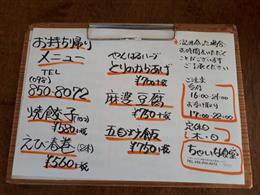 お持ち帰り
メニュー
TEL
(098)
850-8072
焼餃子(10コ)
¥580+税
えび春巻(2本)
¥560+税
やんばるハーブ
とりのからあげ
¥700+税
麻婆豆腐
¥780+税
五目かた焼飯
※混み合った場合
お時間をいただく
ことがございます
ご了承ください
ご注文
受付
16:00-21:00
お受け取り
17:00-22:00
定休日
木・日
ちゃいな食堂